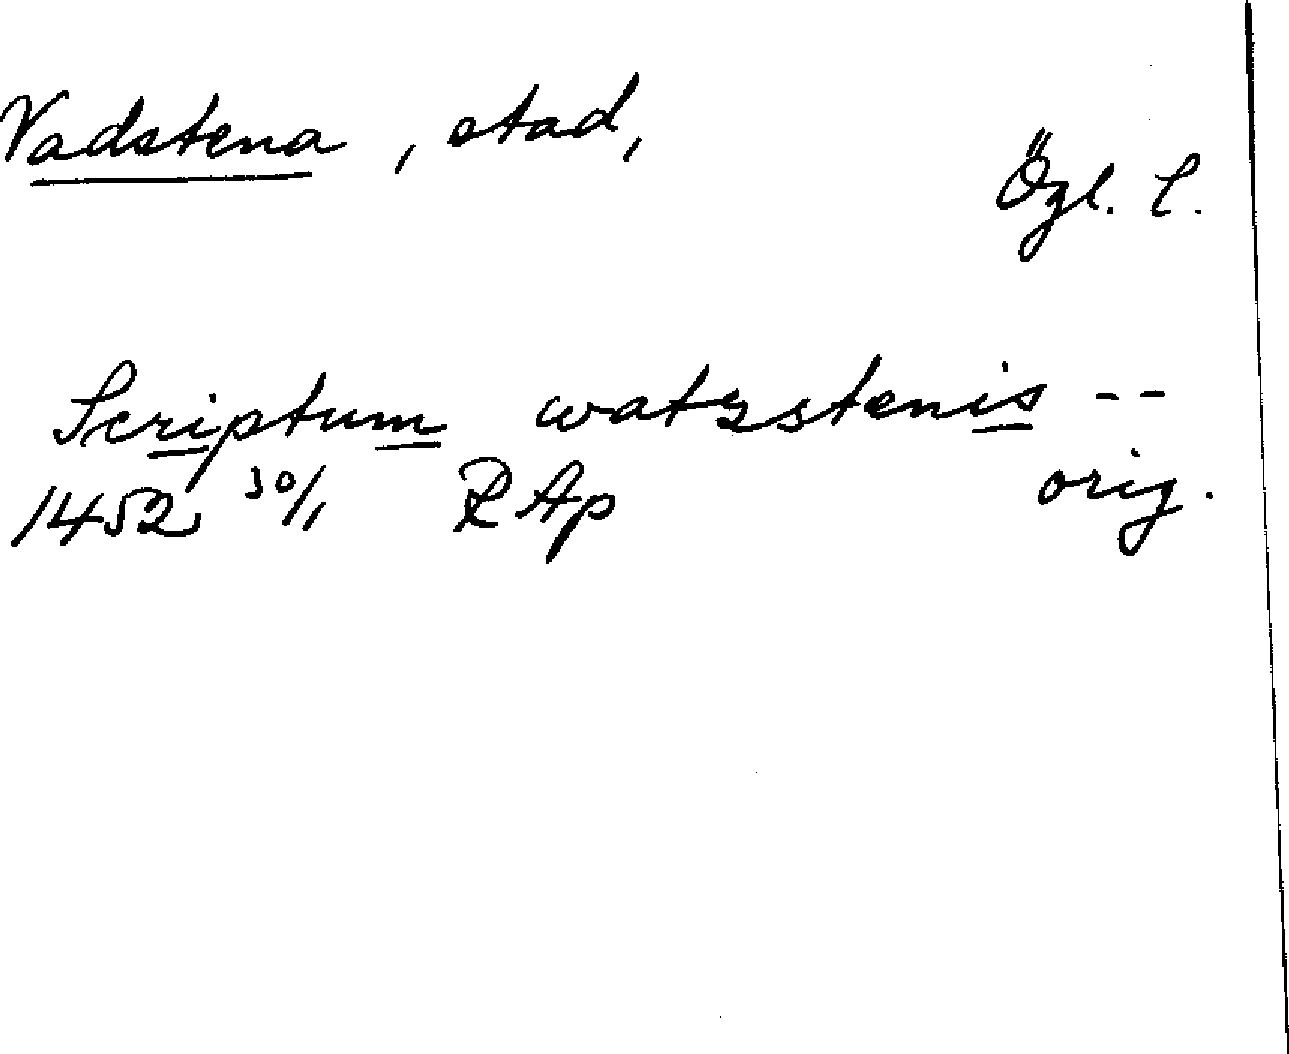 Vadstena, stad,
Ögl. l.
Scriptum watzstenis --
1452 30/1 RAp orig.